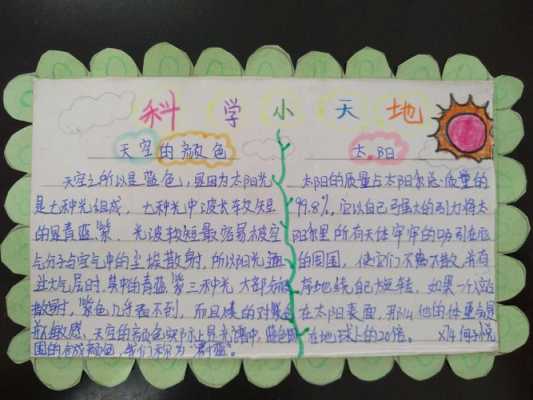 科学小天地
天空的颜色
天空之所以是蓝色,是因为太阳光
是七种光组成,七种光中波长较短
的是青蓝紫,光波较短最容易被空
气分子与空气中的尘埃散射,所以阳光
过大气层时,其中的青蓝紫三种光大部分
散射,紫色几乎看不到,而且
敏感,天空的颜色实际上是光谱中,蓝色
的合成颜色,我们称为"
太阳
太阳的质量占太阳系总质量的
99.8%,它以自己强大的引力将太
阳系里所有天体牢牢的吸引在
的周围,使它们不离不散,
地绕自己旋转,如果一个人站
在太阳表面,那么他的体重会是
在地球上的20倍。